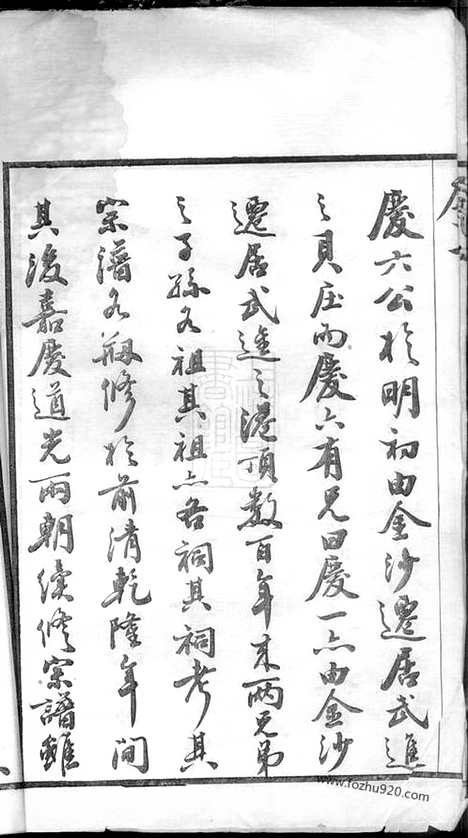 慶六公於明初由金沙遷居武進
之貝庄而慶六有兄曰慶一亦由金沙
遷居武進之港頭數百年來兩兄弟
之子孫各祖其祖亦各祠其祠考其
宗譜名初修於前清乾隆年間
其後嘉慶道光兩朝續修宗譜雖
www.fozhu920.com